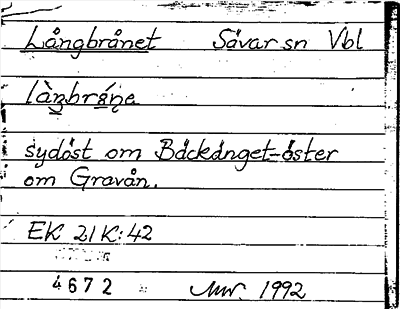 Långbrånet Sävar sn Vbl
sydöst om Bäckänget-öster
om Gravån.
EK 21K:42
4672 1992